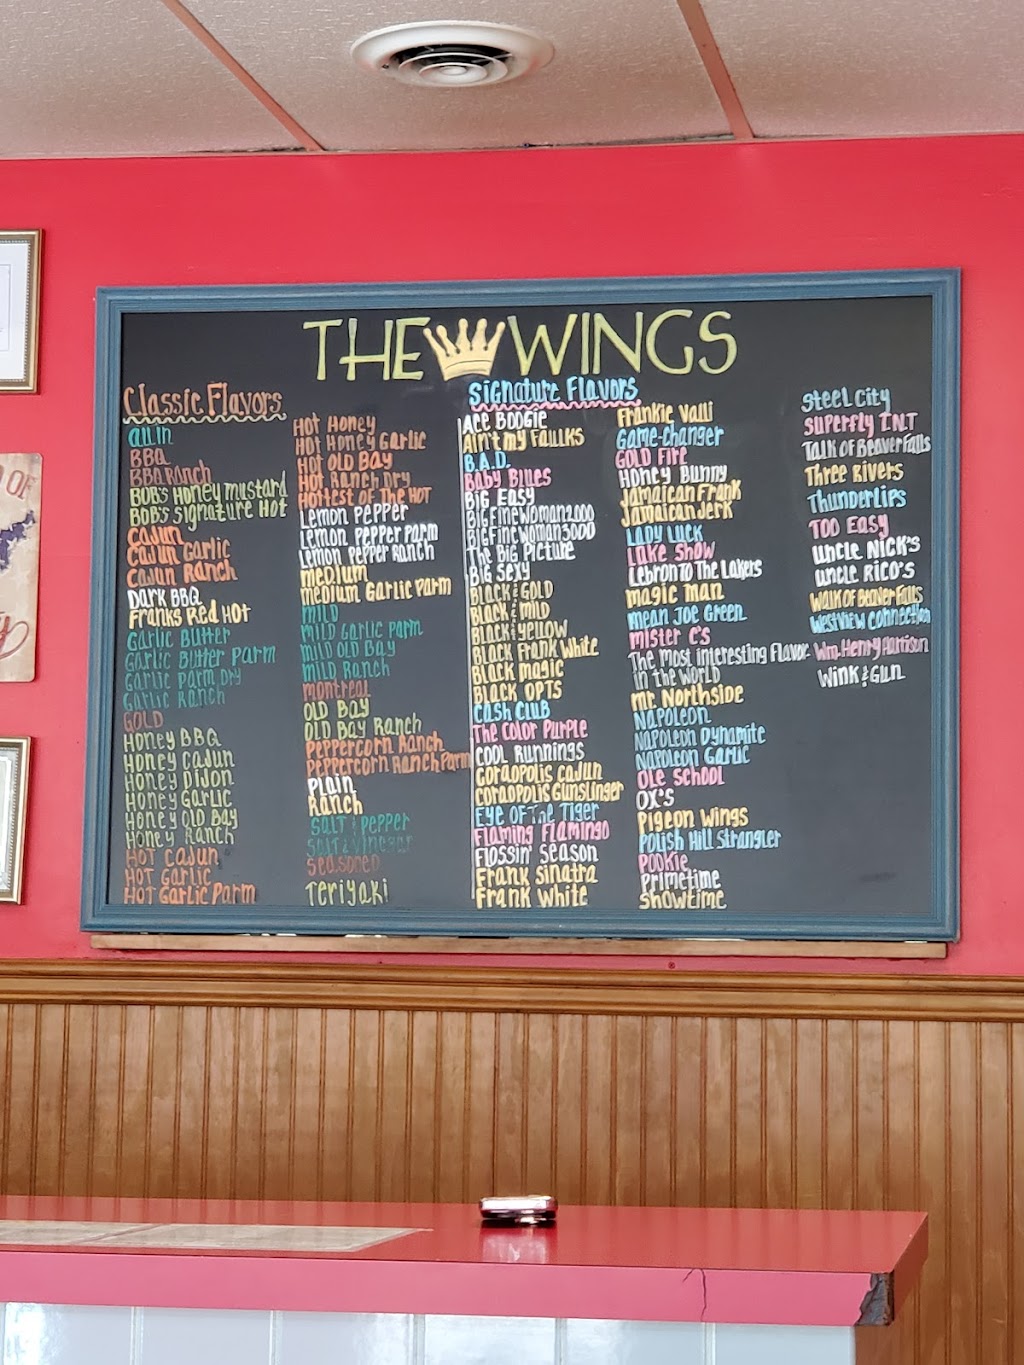 THE WINGS
Classic Flavors
All In
BBQ
BBQ Ranch
Bob's Honey Mustard
Bob's Signature Hot
Cajun
Cajun Garlic
Cajun Ranch
Dark BBQ
Franks Red Hot
Garlic Butter
Garlic Butter Parm
Garlic Parm Dry
Garlic Ranch
Gold
Honey BBQ
Honey Cajun
Honey Dijon
Honey Garlic
Honey Old Bay
Honey Ranch
Hot Cajun
Hot Garlic
Hot Garlic Parm
Hot Honey
Hot Honey Garlic
Hot Old Bay
Hot Ranch Dry
Hottest of The Hot
Lemon Pepper
Lemon Pepper Parm
Lemon Pepper Ranch
Medium
Medium Garlic Parm
Mild
Mild Garlic Parm
Mild Old Bay
Mild Ranch
Montreal
Old Bay
Old Bay Ranch
Peppercorn Ranch
Peppercorn Ranch Parm
Plain
Ranch
Salt & Pepper
Salt & Vinegar
Seasoned
Teriyaki
Signature Flavors
Ace Boogie
Ain't my Faulks
B.A.D.
Baby Blues
Big Easy
Big Fine Woman 2000
Big Fine Woman 3000
The Big Picture
Big Sexy
Black & Gold
Black & Mild
Black & Yellow
Black Frank White
Black Magic
Black Opts
Cash Club
The Color Purple
Cool Runnings
Coraopolis Cajun
Coraopolis Gunslinger
Eye Of The Tiger
Flaming Flamingo
Flossin' Season
Frank Sinatra
Frank White
Frankie Valli
Game-Changer
Gold Fire
Honey Bunny
Jamaican Frank
Jamaican Jerk
Lady Luck
Lake Show
Lebron To The Lakers
Magic Man
Mean Joe Green
Mister C's
The Most Interesting Flavor
in the World
Mr. Northside
Napoleon
Napoleon Dynamite
Napoleon Garlic
Ole School
Ox's
Pigeon Wings
Polish Hill Strangler
Pookie
Primetime
Showtime
Steel City
Superfly T.N.T
Talk of Beaver Falls
Three Rivers
Thunderlips
Too Easy
Uncle Nick's
Uncle Rico's
Walk of Beaver Falls
Westview Connection
Wm. Henry Harrison
Wink & Gun